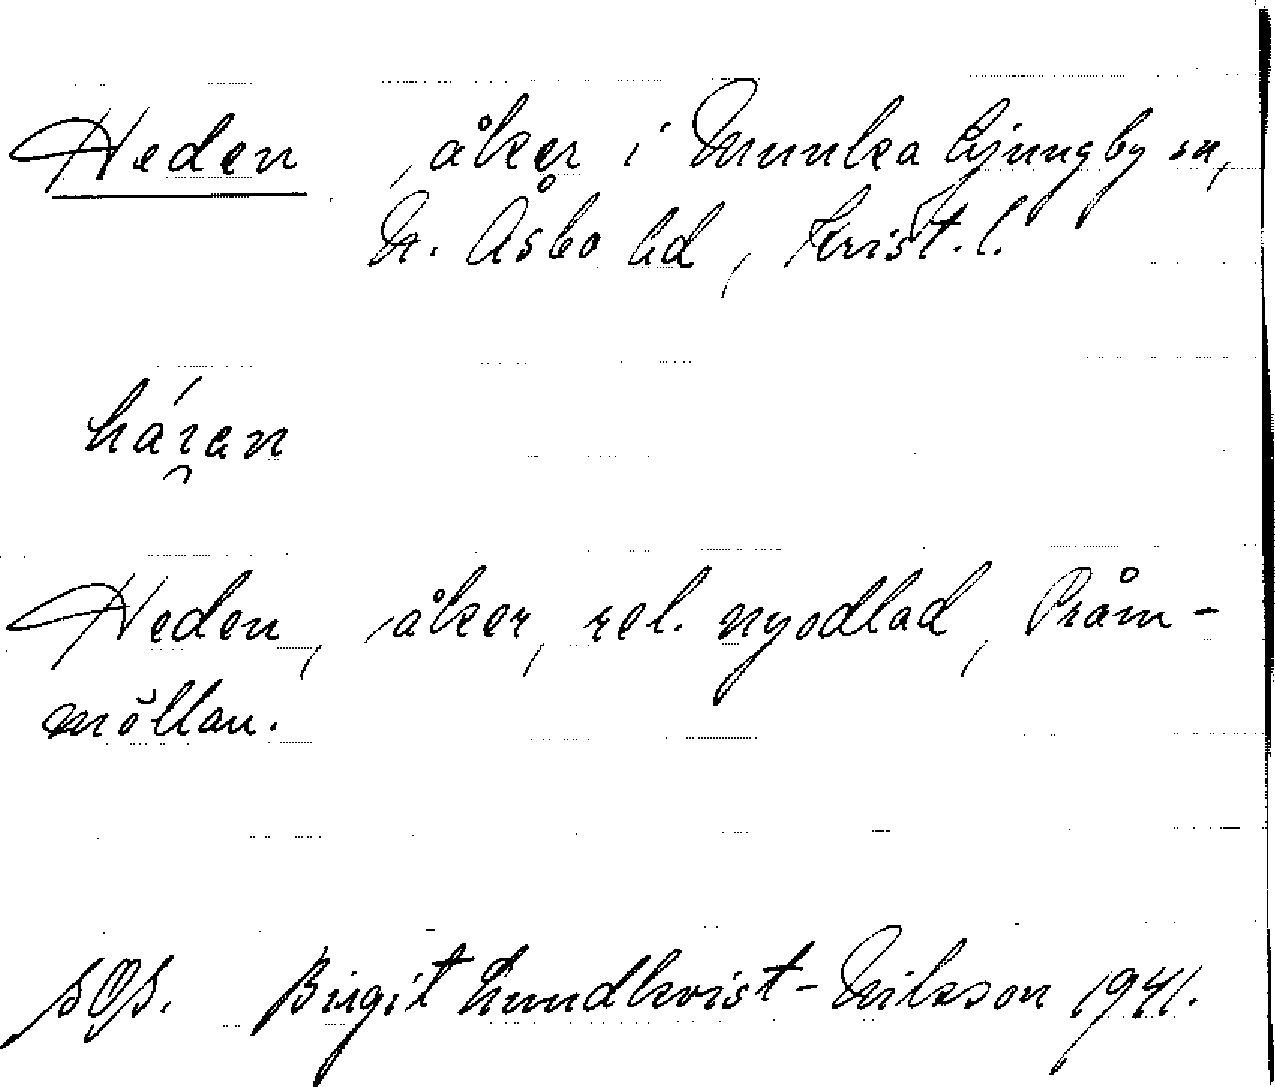 Heden, åker i Munka Ljungby sn,
N. Åsbo hd, Krist. l.
Heden, åker, rel. nyodlad, Pråm-
möllan.
Birgit Lundkvist-Nilsson 1941.